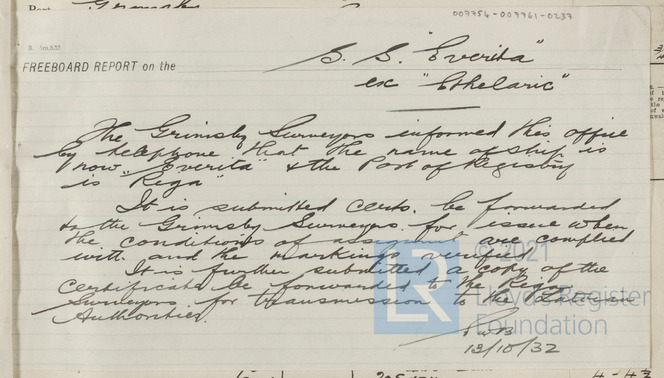 007754-007761-0237
R. 5m,5.32
FREEBOARD REPORT on the
S. S. "Everita"
ex "Ethelaric"
The Grimsby Surveyors informed this office
by telephone that the name of ship is
now "Everita" & the Port of Registry
is "Riga"
It is submitted certs. be forwarded
to the Grimsby Surveyors for issue when
the conditions of assignment are complied
with and the markings verified.
It is further submitted a copy of the
certificate be forwarded to the Riga
Surveyors for transmission to the Latvian
Authorities.
13/10/32
© 2021
LR
Lloyd's Register
Foundation